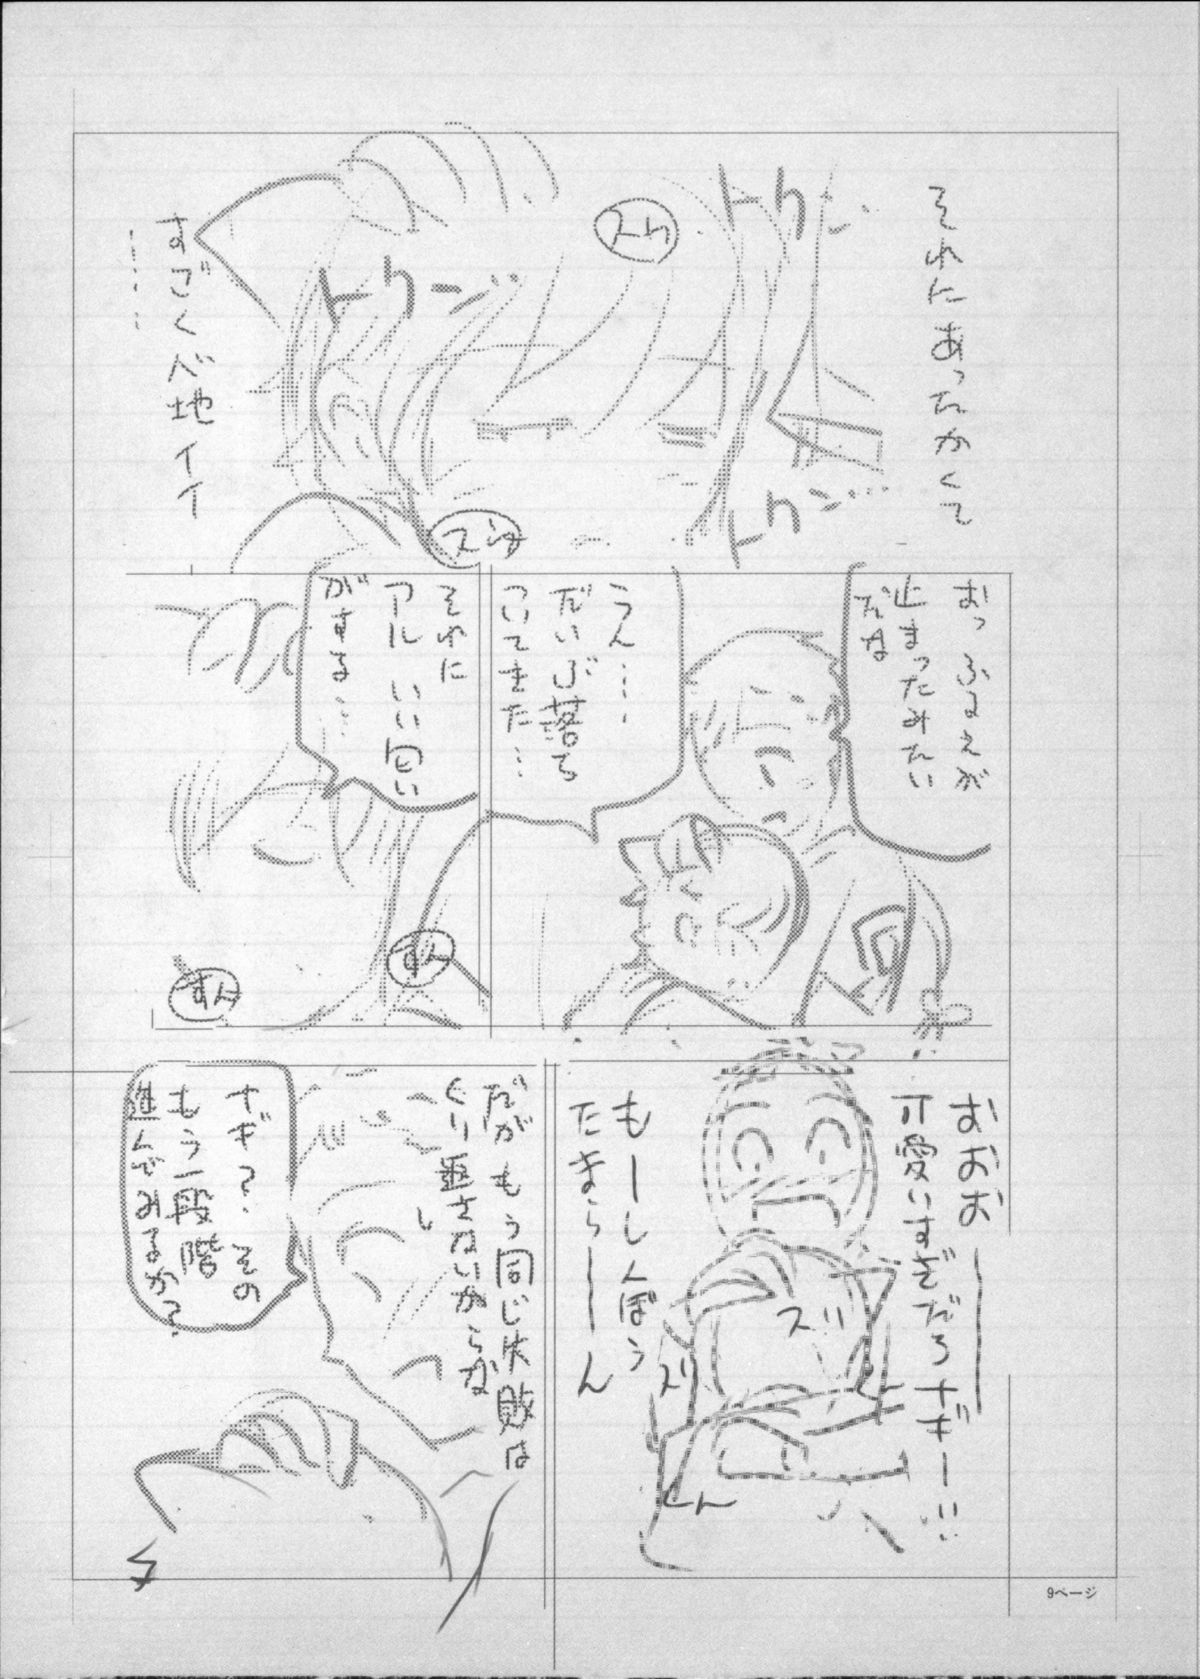 それにあったかくて
トクン…
スウ
トクーン…
トクン…
スウ
すごく心地イイ
……
おっ ふるえが
止まったみたい
だな
うん……
だいぶ落ち
ついてきた…
それに
アル いい匂い
がする…
すん
すん
おおおーー
可愛いすぎだろナギー!!!
もーしんぼう
たまらーーん
スリ
スリ
くん
だがもう同じ失敗は
くり返さないからな
ナギ?その
もう一段階
進んでみるか?
9ページ